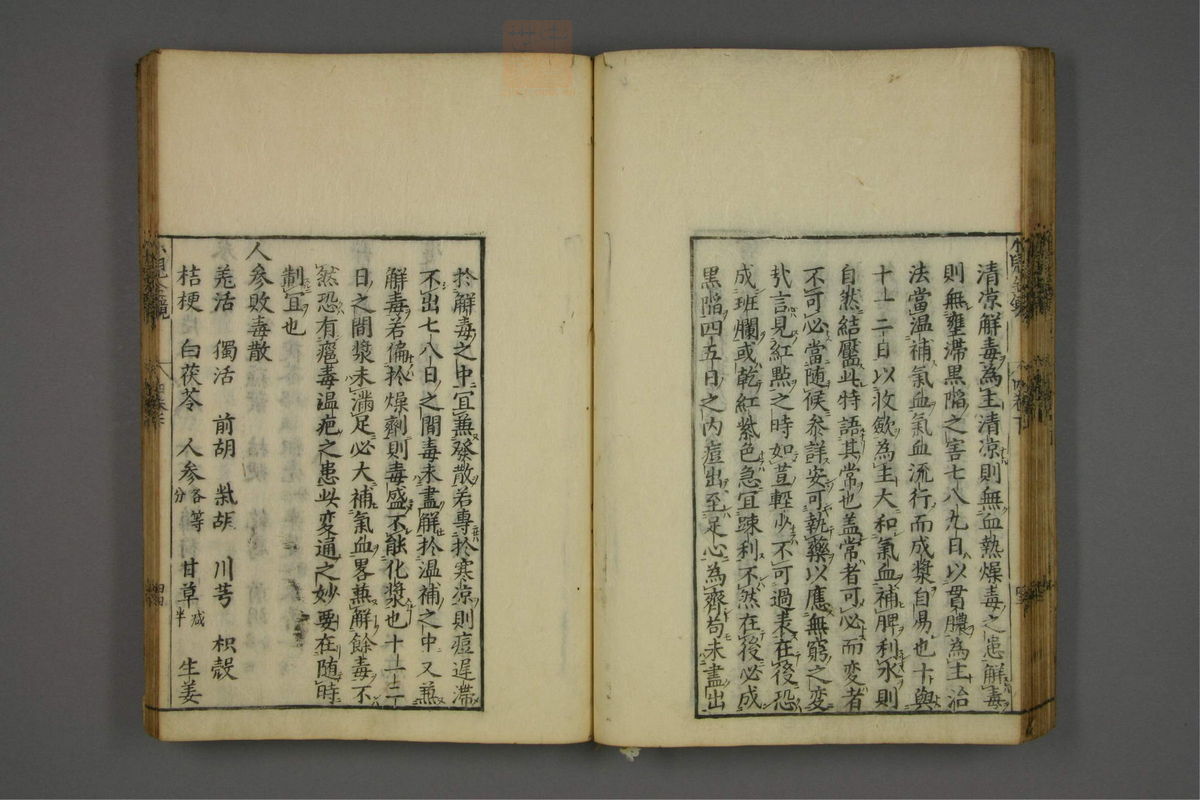 清凉解毒為主清凉則無血熱燥毒之患解毒
則無壅滯黒陥之害七八九日以貫膿為主治
法當温補氣血氣血流行而成漿自易也十與
十一二日以收斂為主大和氣血補脾利水則
自然結靨此特語其常也盖常者可必而変者
不可必當随候参詳安可執藥以應無窮之変
㢤言見紅點之時如荳輕少不可過表在後恐
成班爛或乾紅紫色急宜踈利不然在後必成
黒陥四五日之内痘出至足心為齊苟未盡出
扵解毒之中宜蒹發散若專扵寒凉則痘遅滯
不出七八日之間毒未盡解扵温補之中又蒹
解毒若偏扵燥劑則毒盛不能化漿也十一十二
日之間漿未滿足必大補氣血畧蒹解餘毒不
然恐有癰毒温疤之患此変通之妙要在随時
制宜也
人參敗毒散
羌活 獨活 前胡 柴胡 川芎 枳殻
桔梗 白茯苓 人參各等分 甘草减半 生姜